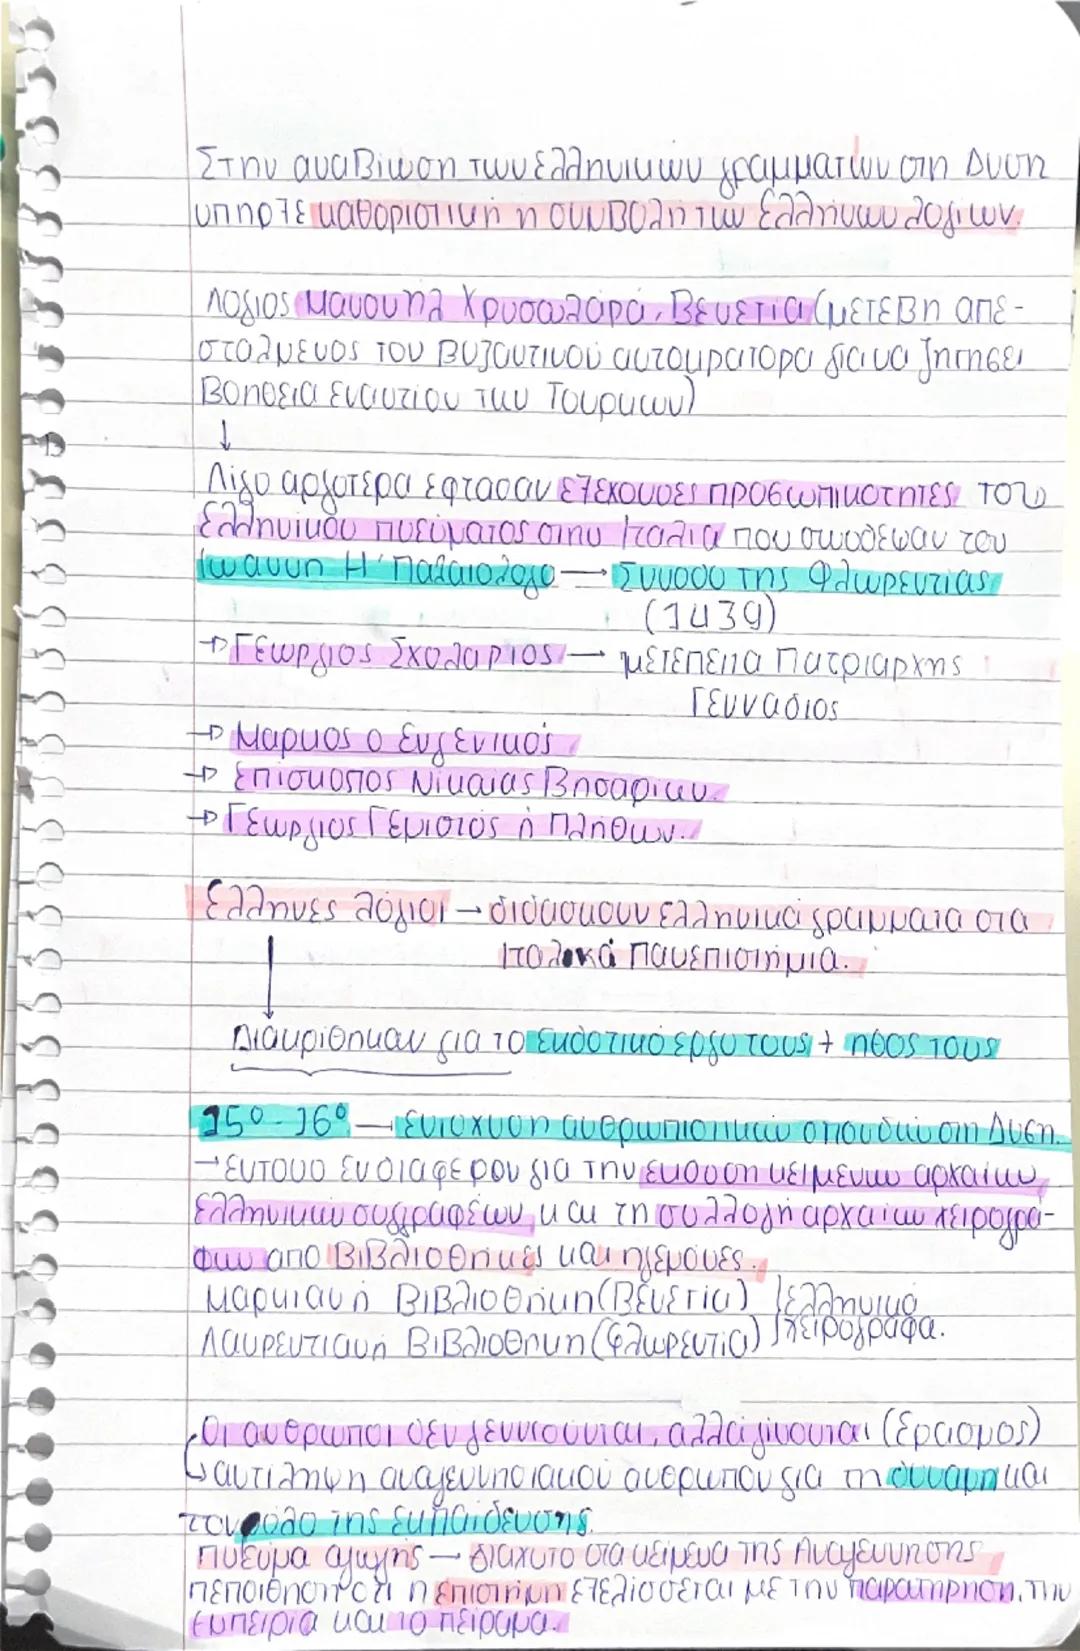 Στην αναβίωση των Ελληνικών γραμμάτων στη Δύση
υπήρξε καθοριστική η συμβολή των Ελλήνων λογίων.
Λόγιος Μανουήλ Χρυσωλαρά, Βενετία (μετέβη απε-
σταλμένος του Βυζαντινού αυτοκράτορα για να ζητήσει
Βοήθεια εναντίον των Τούρκων)
↓
Λίγο αργότερα έφτασαν εξέχουσες προσωπικότητες του
Ελληνικού πνεύματος στην Ιταλία που συνόδευαν τον
Ιωάννη Η' Παλαιολόγο → Σύνοδο της Φλωρεντίας
(1439)
→ Γεώργιος Σχολάριος → μετέπειτα Πατριάρχης
Γεννάδιος
→ Μάρκος ο Ευγενικός
→ Επίσκοπος Νίκαιας Βησαρίων.
→ Γεώργιος Γεμιστός ή Πλήθων.
Έλληνες λόγιοι → διδάσκουν ελληνικά γράμματα στα
Ιταλικά Πανεπιστήμια.
Διακρίθηκαν για το εκδοτικό έργο τους + ήθος τους
15ο - 16ο → ενίσχυση ανθρωπιστικών σπουδών στη Δύση.
→ έντονο ενδιαφέρον για την έκδοση κειμένων αρχαίων
Ελληνικών συγγραφέων και τη συλλογή αρχαίων χειρογρά-
φων από Βιβλιοθήκες και ηγεμόνες.
Μαρκιανή Βιβλιοθήκη (Βενετία) } ελληνικά
Λαυρεντιανή Βιβλιοθήκη (Φλωρεντία) } χειρόγραφα.
Οι άνθρωποι δεν γεννιούνται, αλλά γίνονται (Έρασμος)
↳ αντίληψη αναγεννησιακού ανθρώπου για τη δύναμη και
τον ρόλο της εκπαίδευσης.
Πνεύμα αγωγής → διάχυτο στα κείμενα της Αναγέννησης
πεποίθηση ότι η επιστήμη εξελίσσεται με την παρατήρηση, την
εμπειρία και το πείραμα.